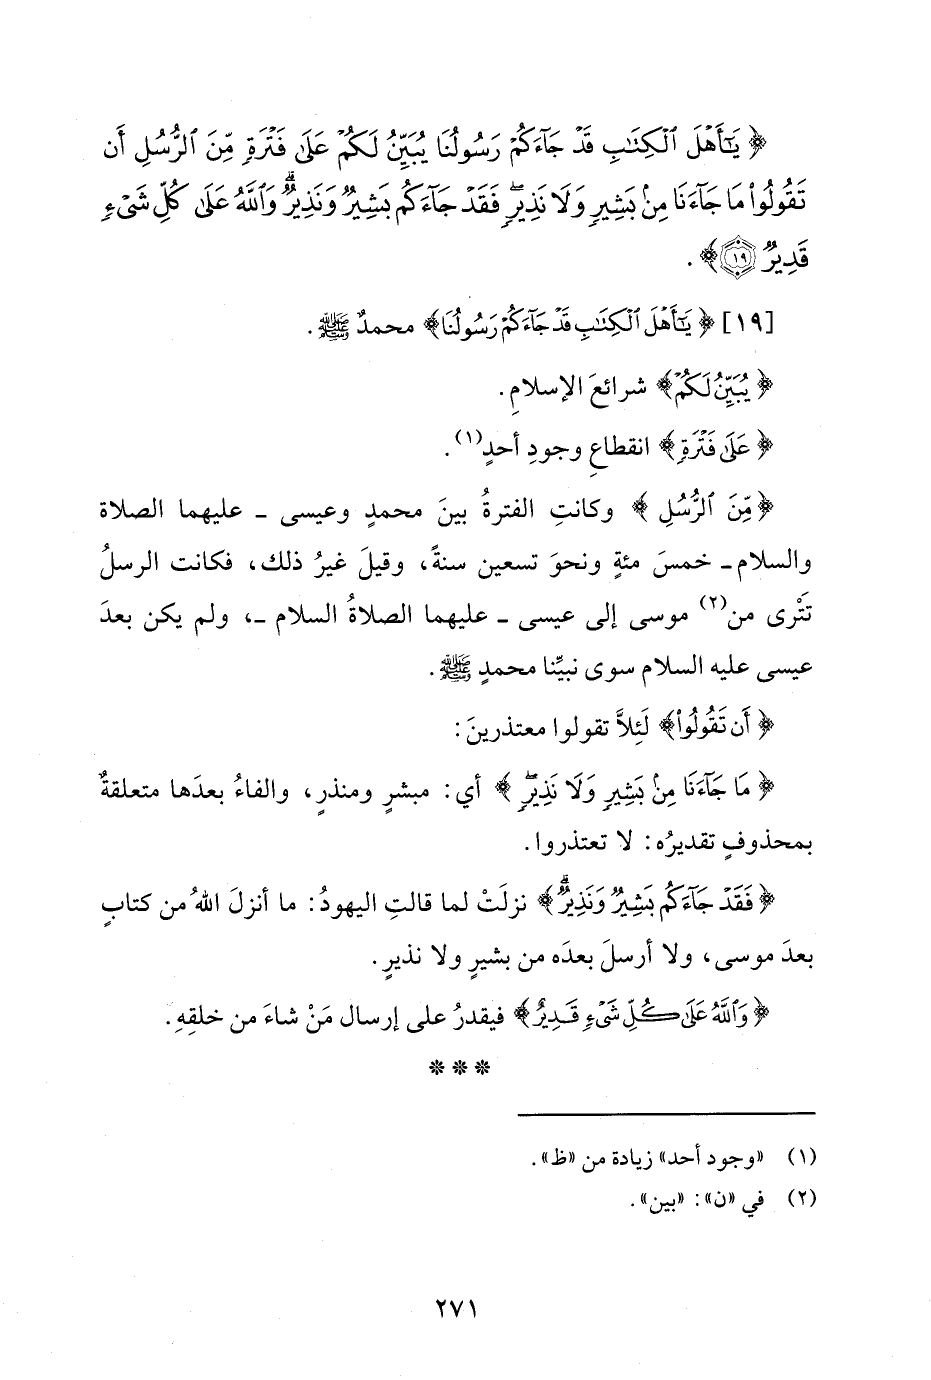 ﴿ يَٰٓأَهۡلَ ٱلۡكِتَٰبِ قَدۡ جَآءَكُمۡ رَسُولُنَا يُبَيِّنُ لَكُمۡ عَلَىٰ فَتۡرَةٖ مِّنَ ٱلرُّسُلِ أَن
تَقُولُواْ مَا جَآءَنَا مِنۢ بَشِيرٖ وَلَا نَذِيرٖۖ فَقَدۡ جَآءَكُم بَشِيرٞ وَنَذِيرٞۗ وَٱللَّهُ عَلَىٰ كُلِّ شَيۡءٖ
قَدِيرٞ ۝١٩﴾ .
[١٩] ﴿ يَٰٓأَهۡلَ ٱلۡكِتَٰبِ قَدۡ جَآءَكُمۡ رَسُولُنَا﴾ محمدٌ ﷺ .
﴿ يُبَيِّنُ لَكُمۡ﴾ شرائعَ الإسلامِ.
﴿ عَلَىٰ فَتۡرَةٖ ﴾ انقطاعِ وجودِ أحدٍ(١) .
﴿مِّنَ ٱلرُّسُلِ ﴾ وكانتِ الفترةُ بينَ محمدٍ وعيسى ـ عليهما الصلاة
والسلام ـ خمسَ مئةٍ ونحوَ تسعين سنةً، وقيلَ غيرُ ذلك، فكانت الرسلُ
تَتْرى من(٢) موسى إلى عيسى ـ عليهما الصلاةُ السلام ـ، ولم يكن بعدَ
عيسى عليه السلام سوى نبيِّنا محمدٍ ﷺ .
﴿ أَن تَقُولُواْ﴾ لَئِلاَّ تقولوا معتذرينَ:
﴿ مَا جَآءَنَا مِنۢ بَشِيرٖ وَلَا نَذِيرٖۖ ﴾ أي: مبشرٍ ومنذرٍ، والفاءُ بعدَها متعلقةٌ
بمحذوفٍ تقديرُه: لا تعتذروا.
﴿ فَقَدۡ جَآءَكُم بَشِيرٞ وَنَذِيرٞۗ﴾ نزلَتْ لما قالتِ اليهودُ: ما أنزلَ اللهُ من كتابٍ
بعدَ موسى، ولا أرسلَ بعدَه من بشيرٍ ولا نذيرٍ.
﴿ وَٱللَّهُ عَلَىٰ كُلِّ شَيۡءٖ قَدِيرٞ﴾ فيقدرُ على إرسال مَنْ شاءَ من خلقِهِ.
* * *
(١) «وجود أحد» زيادة من «ظ».
(٢) في «ن»: «بين».
٢٧١